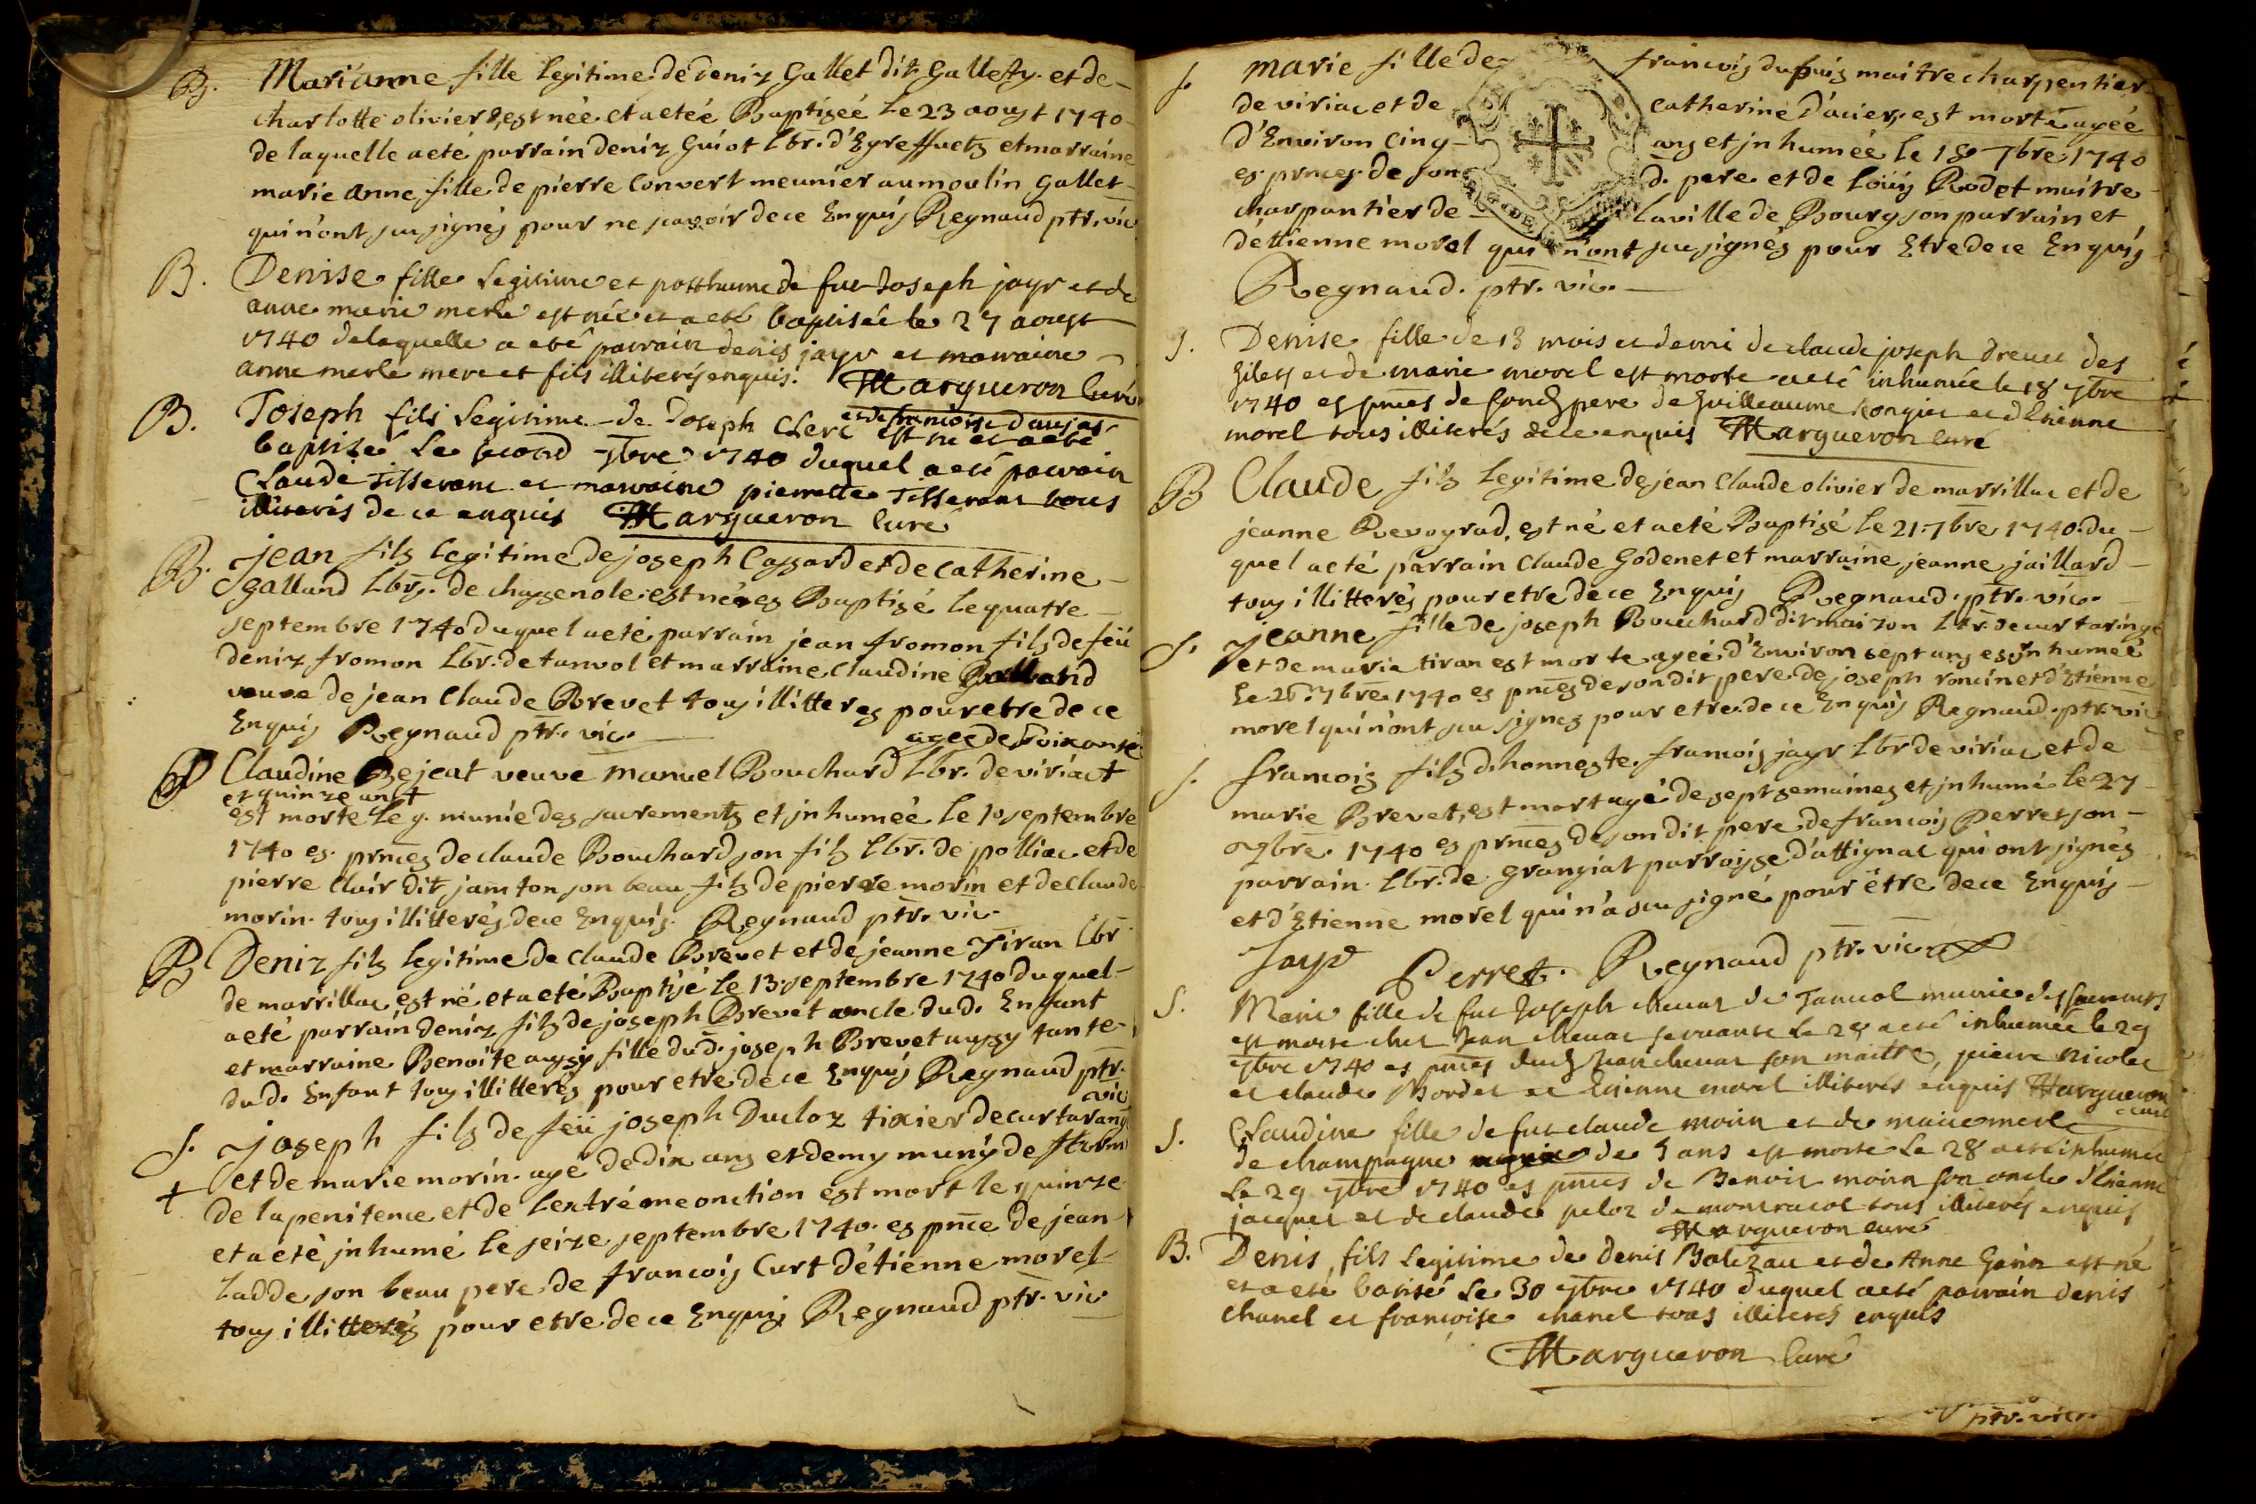 B. Marianne fille legitime de deniz Gallet dit Gallety et de
charlotte olivier est née et a eteé Baptizeé le 23 aoust 1740
de laquelle a eté parrain deniz Guiot lbr. d'Eyreffuets et marraine
marie anne fille de pierre Convert meunier au moulin Gallet
qui n'ont su signés pour ne scavoir de ce Enquis Regnaud ptr. vic
B. Denise fille legitime et posthume de fut Joseph jayr et de
anne marie merle est née et a eté baptisée le 27 aoust
1740 de laquelle a eté parrain denis jayr et marraine
anne merle mere et fils illiterés enquis. Margueron Curé
B. Joseph fils legitime de Joseph Clerc et de francoise daujat est né et a eté
baptizé le second 7bre 1740 duquel a eté parrain
Claude Tisserant et marraine pierrette Tisserant tous
illiterés de ce enquis Margueron Curé
B. jean filz legitime de joseph Cassard et de catherine
galland lbrs. de chassenole est né et Baptizé le quatre
septembre 1740 duquel a eté parrain jean fromon filz de feu
deniz fromon lbr. de tanvol et marraine Claudine
veuve de jean Claude Brevet tous illitterés pour etre de ce
Enquis Regnaud ptr. vic.
ageé de soixante
S Claudine Bejeat veuve manuel Bouchard lbr. de viriact
et quinze ans
est morte le 9. munie des sacrements et jnhumeé le 10 septembre
1740 es prnces de claude Bouchard son filz lbr. de polliac et de
pierre Clair dit janton son beau filz de pierre morin et de claude
morin. tous illitterés de ce Enquis. Regnaud ptr. vic.
B Deniz filz legitime de claude Brevet et de jeanne Tiran lbr.
de marrillac est né et a eté Baptisé le 13. septembre 1740 duquel
a eté parrain deniz filz de joseph Brevet oncle dud. Enfant
et marraine Benoite aussy fille dud. joseph Brevet aussy tante
dud. Enfant tous illitterés pour etre de ce Enquis Regnaud ptr.
vic
S. joseph filz de feu joseph Ducloz tixier de curtarang
et de marie morin. agé de dix ans et demy muny de
de la penitence et de Lextrême onction est mort le quinze
et a eté jnhumé le seize septembre 1740. es pnce de jean
Ladde son beau pere de francois Curt d'étienne morel
tous illitterés pour etre de ce Enquis Regnaud ptr. vic
S. marie fille de francois dupuis maitre charpentier
de viriac et de catherine d'acier, est morte ageé
d'Environ cinq ans et jnhumeé le 18 7bre 1740
es prnces de son d. pere et de Loüis Rodet maitre
charpantier de la ville de Bourg son parrain et
d'ettienne morel qui n'ont su signés pour Etre de ce Enquis
Regnaud. ptr. vic.
S. Denise fille de 13 mois et demi de claude joseph dreuet des
Gilets et de marie morel est morte a eté inhumée le 18 7bre
1740 es pnces de sond. pere de Guilleaume et d'Etienne
morel tous illiterés de ce enquis Margueron Curé
B Claude filz Legitime de jean Claude olivier de marrillac et de
jeanne Revoyrad, est né et a eté Baptizé le 21. 7bre 1740. du
quel a eté parrain Claude Godenet et marraine jeanne jaillard
tous illitterés pour etre de ce Enquis Regnaud. ptr. vic.
S. jeanne fille de joseph Bouchard dit maizon lbr. de curtaringe
et de marie tiran est morte ageé d'Environ sept ans et jnhumeé
le 26. 7bre 1740 es pnces de son dit pere de joseph roncin et d'Etienne
morel qui n'ont su signes pour etre de ce Enquis Regnaud ptr. vic
S. francois filz d'honneste francois jayr lbr de viriac et de
marie Brevet, est mort agé de sept semaines et jnhumé le 27
7bre. 1740 es prnces de son dit pere de francois Perret son
parrain. lbr. de grangiat parroisse d'attignat qui ont signés
et d'Etienne morel qui n'a su signé pour être de ce Enquis
Jayr Perret. Regnaud ptr. vic
S. Marie fille de fut Joseph chanat de Tanvol munie des sacrements
est morte chez Jean chanat servante le 28 a eté inhumée le 29
7bre 1740 es pnces dud Jean chanat son maitre, pierre Nicolas
et claude Bordet et Etienne morel illiterés enquis Margueron
curé
S. Claudine fille de fut claude morin et de marie merle
de champagne de 5 ans est morte le 28 a eté inhumée
le 29 7bre 1740 es pnces de Benoit morin son oncle d'Etienne
jacquet et de claude peloz de montracol tous illiterés enquis
Margueron curé
B. Denis fils legitime de denis Bolozau et de Anne Gorin est né
et a eté batisé le 30 7bre 1740 duquel a eté parrain denis
chanel et françoise chanel tous illiterés enquis
Margueron Curé
ptr. vic.